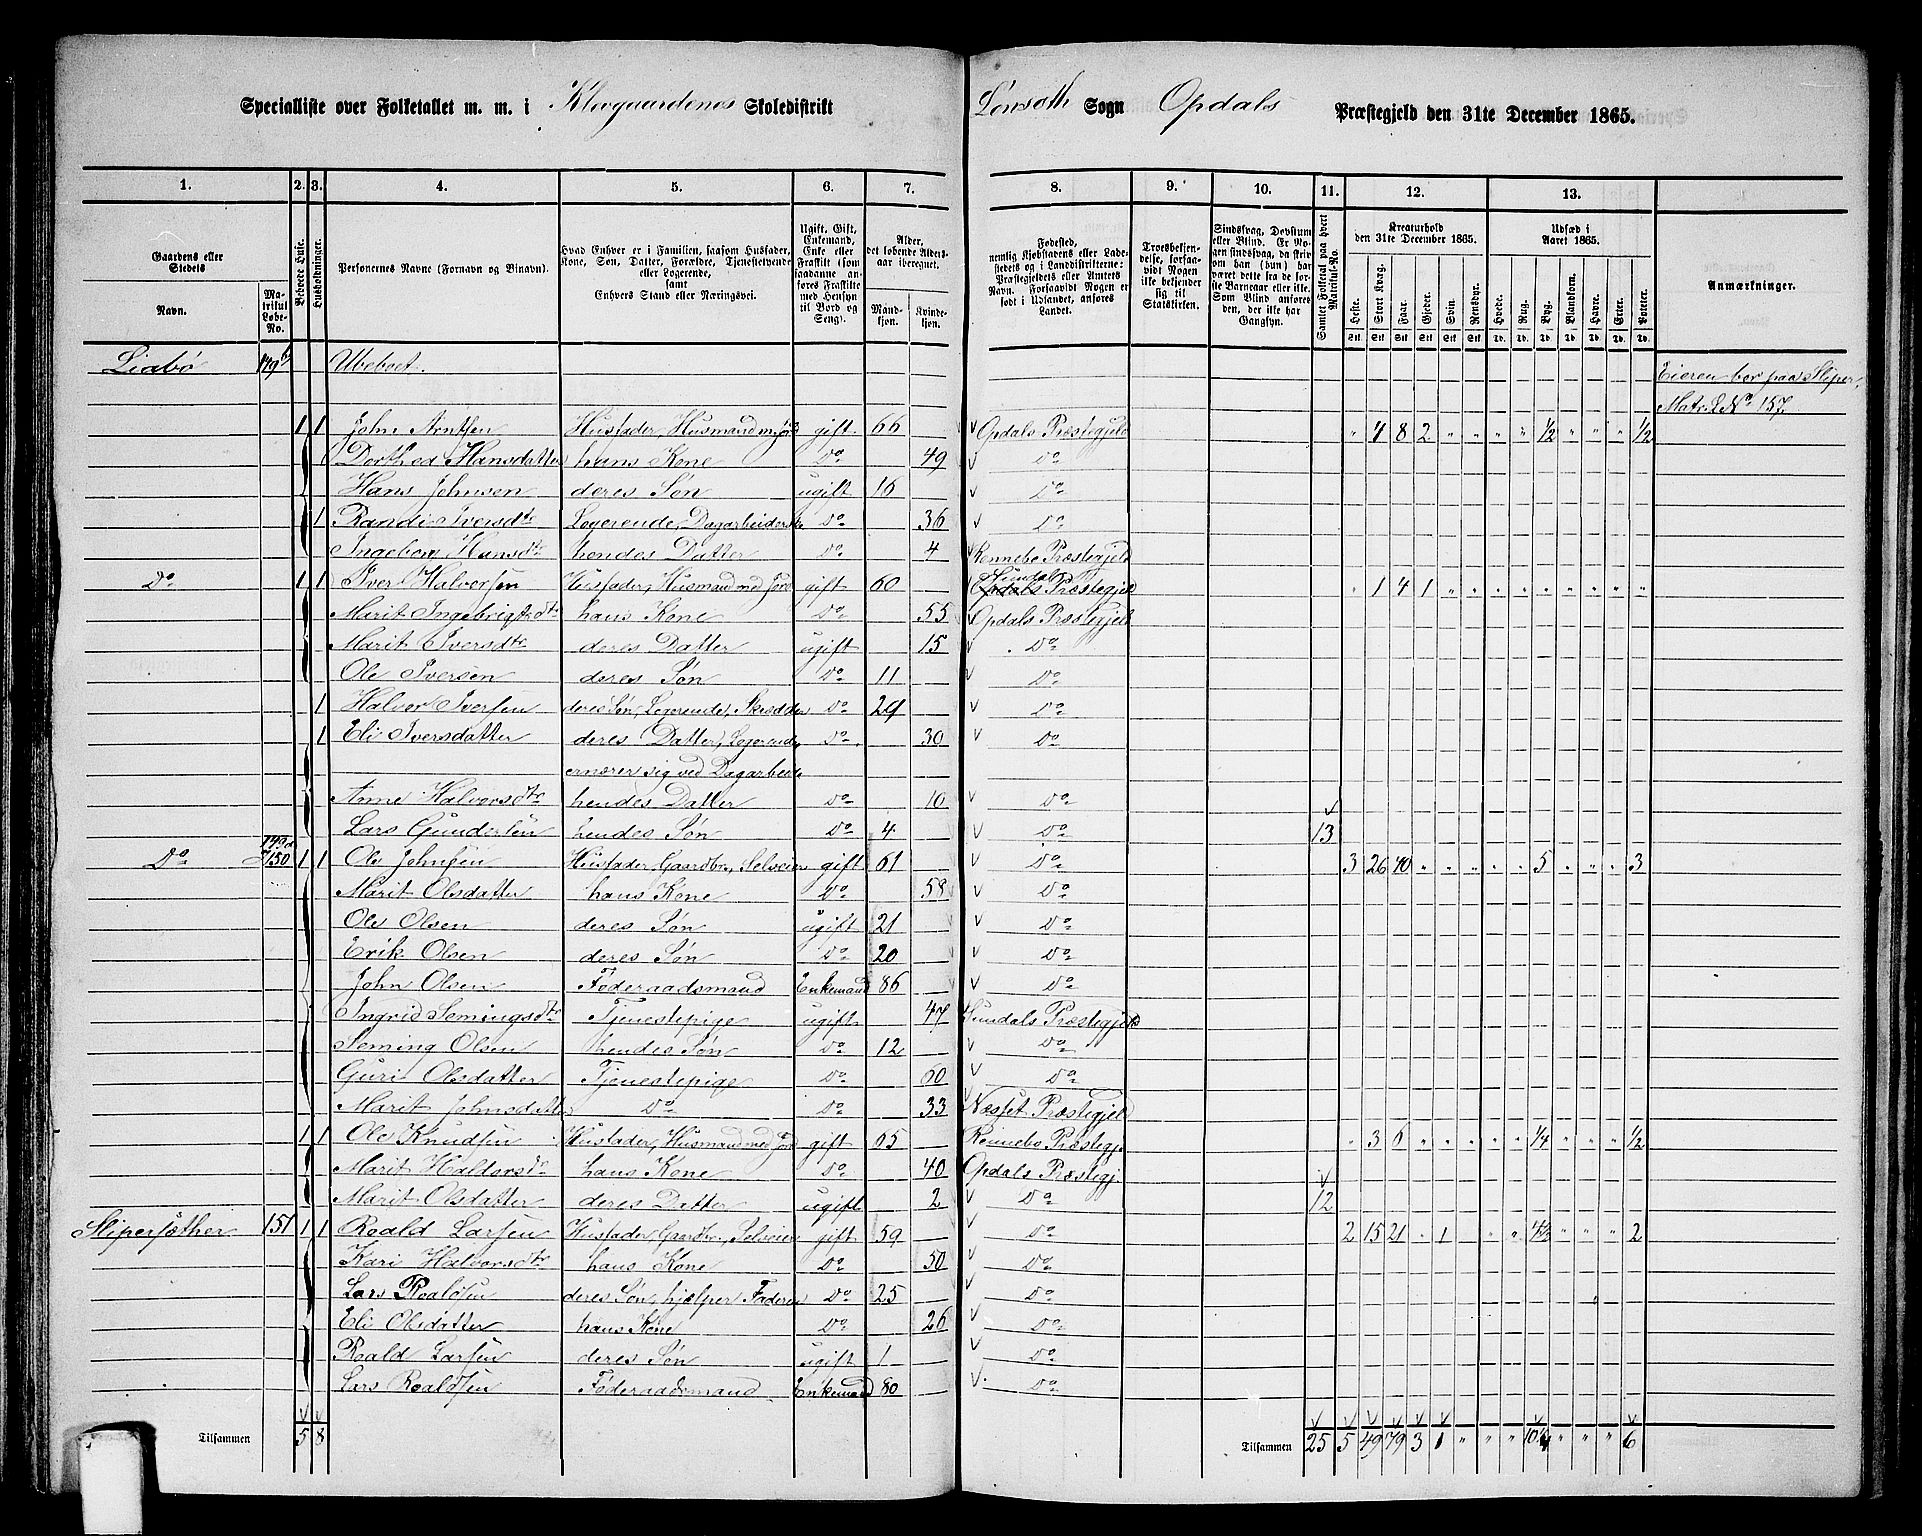 Specialliste over Folketallet m. m. i Klevgaardenes Skoledistrikt Lønseth Sogn Opdals Præstegjeld den 31te December 1865.
1. 2. 3. 4. 5. 6. 7. 8. 9. 10. 11. 12. 13.
Gaardens eller Stedets Navn. Matrikul Løbe-No. Beboede Huse. Husholdninger. Personernes Navne (Fornavn og Binavn).
Hvad Enhver er i Familien, saasom Husfader, Kone, Søn, Datter, Forældre, Tjenestetyende eller Logerende, samt Enhvers Stand eller Næringsvei.
Ugift, Gift, Enkemand, Enke eller Fraskilt (som saadanne anføres Fraskilte med Hensyn til Bord og Seng).
Alder, det løbende Alders-aar iberegnet. Mandkjøn. Kvindekjøn.
Fødested, nemlig Kjøbstadens eller Ladestedets og i Landdistrikterne: Præstegjeldets eller Amtets Navn. Forsaavidt Nogen er født i Udlandet, anføres Landet.
Troesbekjendelse, forsaavidt Nogen ikke bekjender sig til Statskirken.
Sindssvag, Døvstum eller Blind. Er Nogen sindssvag, da skrives om han (hun) har været dette fra første Barneaar eller ikke. Som Blind anføres den, der ikke har Gangsyn.
Samlet Folketal paa hvert Matrikul-No.
Kreaturhold den 31te December 1865. Heste. Stort Kvæg. Faar. Gjeder. Svin. Rensdyr.
Udsæd i Aaret 1865. Hvede. Rug. Byg. Blandkorn. Havre. Erter. Poteter.
Anmærkninger.
Liabø 149b Ubeboet. Eieren bor paa Sliper, Matr. L No 157
1 1 John Arntsen Husfader, Husmand m. Jord gift 66 Opdals Præstegjeld " 4 8 2 " " " " 1/2 " " " 1/2
Dorthea Hansdatter hans Kone Do 49 Do
Hans Johnsen deres Søn ugift 16 Do
1 Randi Iversdtr Logerende, Dagarbeiderske Do 36 Do
Ingeborg Hansdtr hendes Datter Do 4 Rennebo Præstegjeld
Do 1 1 Iver Halvorsen Husfader, Husmand med Jord gift 60 Sundals Præstegjeld " 1 4 1 " " " " " " " " "
Marit Ingebrigtsdtr hans Kone Do 55 Opdals Præstegjeld
Marit Iversdtr deres Datter ugift 15 Do
Ole Iversen deres Søn Do 11 Do
1 Halvor Iversen deres Søn, Logerende, Skrædder Do 29 Do
1 Eli Iversdatter deres Datter, Logerende Do 30 Do
ernærer sig ved Dagarbeide
Anne Halvorsdtr hendes Datter Do 10 Do
Lars Gundersen hendes Søn Do 4 Do 13
Do 149a 150 1 1 Ole Johnsen Husfader, Gaardbr., Selveier gift 61 Do 3 26 40 " " " " " 5 " " " 3
Marit Olsdatter hans Kone Do 58 Do
Ole Olsen deres Søn ugift 21 Do
Erik Olsen deres Søn Do 20 Do
John Olsen Føderaadsmand Enkemand 86 Do
Ingrid Semingsdtr Tjenestepige ugift 47 Sundals Præstegjeld
Seming Olsen hendes Søn Do 12 Do
Guri Olsdatter Tjenestepige Do 60 Do
Marit Johnsdatter Do Do 33 Næsset Præstegjeld
1 1 Ole Knudsen Husfader, Husmand med Jord gift 65 Rennebo Præstegj. " 3 6 " " " " " 1/4 " " " 1/2
Marit Haldorsdtr hans Kone Do 40 Opdals Præstegj.
Marit Olsdatter deres Datter ugift 2 Do 12
Slipersæther 151 1 1 Roald Larsen Husfader, Gaardbr., Selveier gift 59 Do 2 15 21 " 1 " " " 4 1/2 " " " 2
Kari Halvorsdtr hans Kone Do 50 Do
Lars Roaldsen deres Søn, hjælper Faderen Do 25 Do
Eli Olsdatter hans Kone Do 26 Do
Roald Larsen deres Søn ugift 1 Do
Lars Roaldsen Føderaadsmand Enkemand 80 Do
Tilsammen 5 8 Tilsammen 25 5 49 79 3 1 " " " 10 1/4 " " " 6